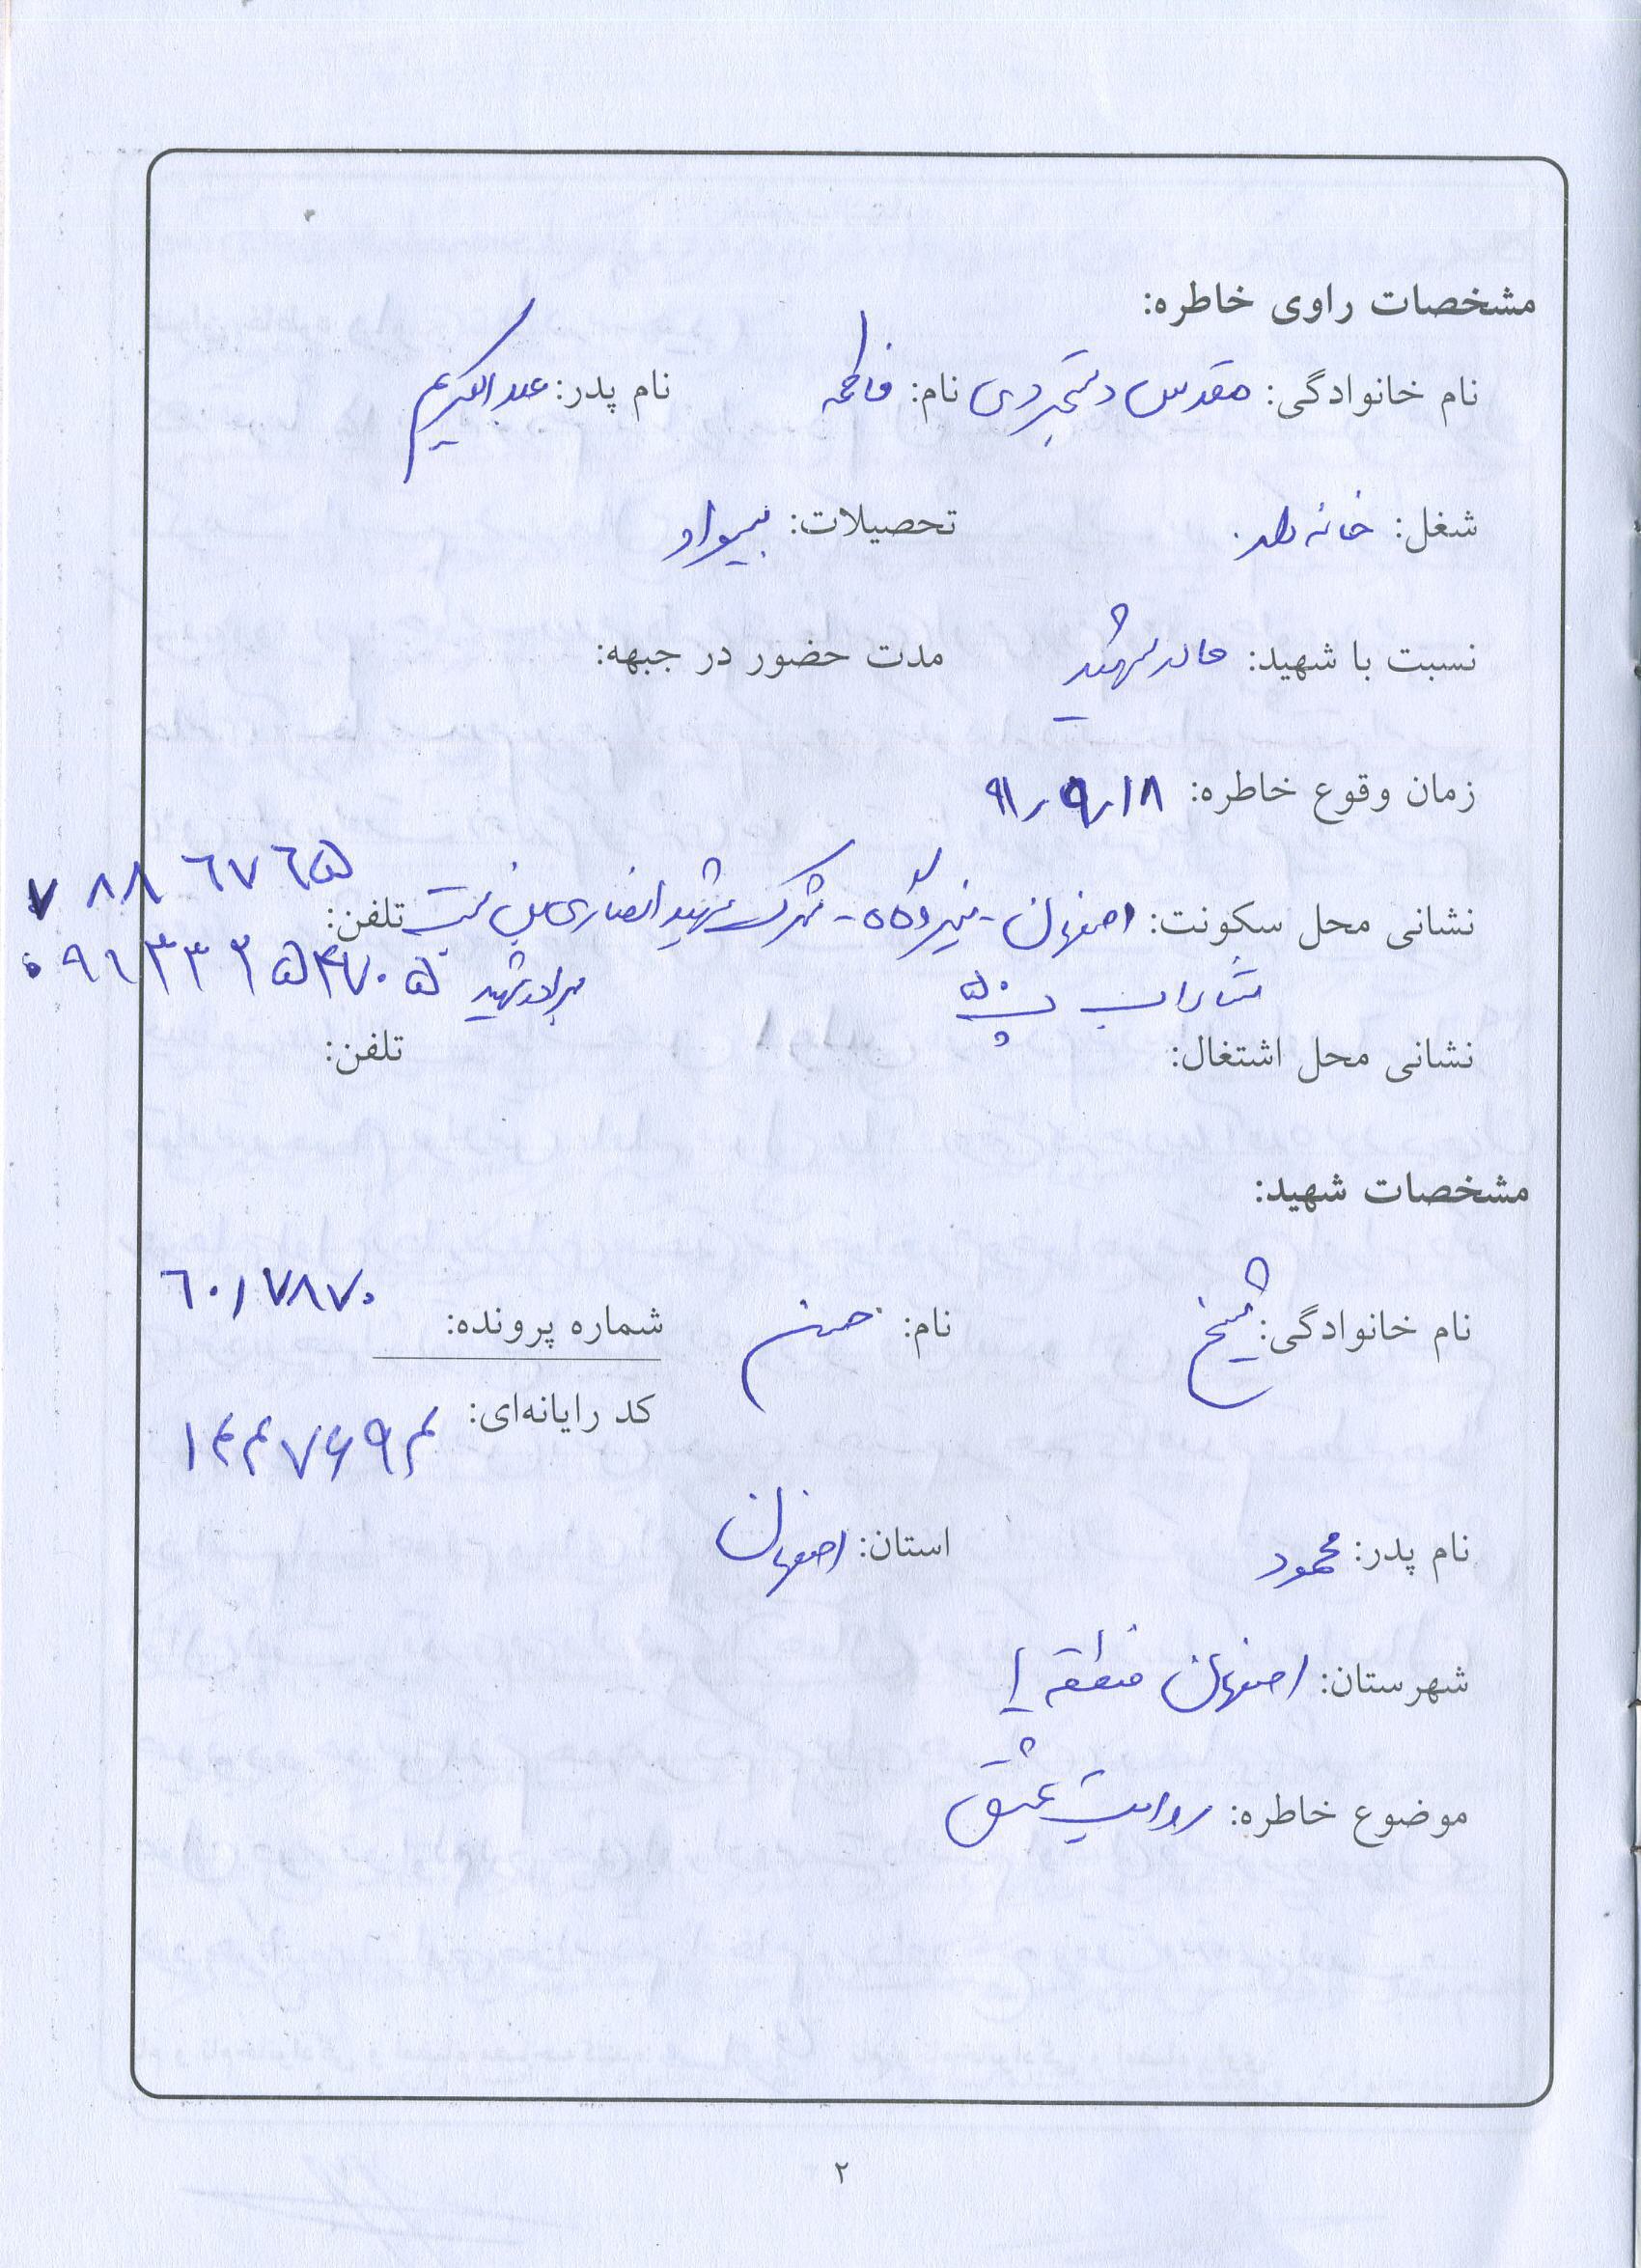 مشخصات راوی خاطره:
نام خانوادگی: مقدس دستجردی نام: فاطمه نام پدر: عبدالکریم
شغل: خانه دار تحصیلات: بیسواد
نسبت با شهید: مادر شهید مدت حضور در جبهه:
زمان وقوع خاطره: ۹۱٫۹٫۱۸
نشانی محل سکونت: اصفهان - نیروگاه - شهرک شهید انصاری بن بست تلفن: ۷۸۸۶۷۶۵
شاداب پ ۵۰ برادر شهید
نشانی محل اشتغال: تلفن:
مشخصات شهید:
نام خانوادگی: شیخ نام: حسن شماره پرونده: ۶۰۱۷۸۷۰
کد رایانه‌ای: ۱۴۴۷۶۹۴
نام پدر: محمود استان: اصفهان
شهرستان: اصفهان منطقه ۱
موضوع خاطره: روایت عشق
۲